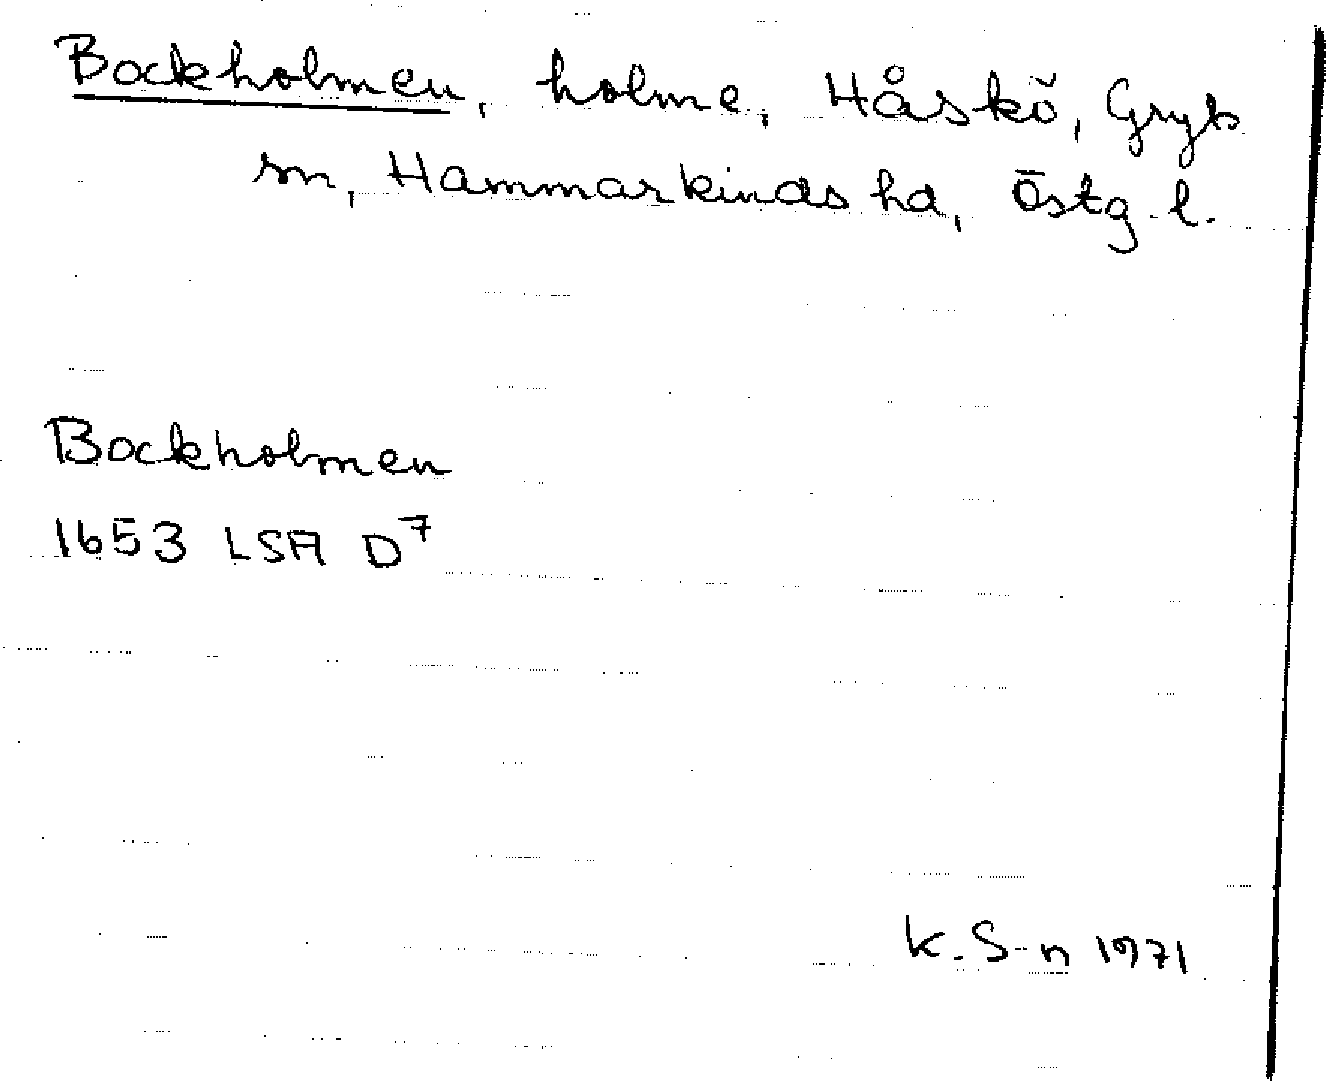 Bockholmen, holme, Håskö, Gryts
sn, Hammarkinds hd, Östg. l.
Bockholmen
1653 LSA D7
K. S-n 1971